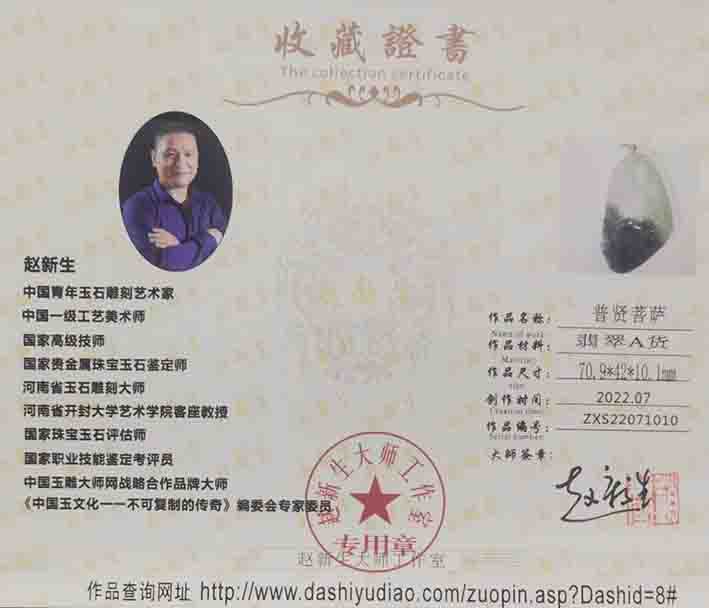 收藏證書
The collection certificate
赵新生
中国青年玉石雕刻艺术家
中国一级工艺美术师
国家高级技师
国家贵金属珠宝玉石鉴定师
河南省玉石雕刻大师
河南省开封大学艺术学院客座教授
国家珠宝玉石评估师
国家职业技能鉴定考评员
中国玉雕大师网战略合作品牌大师
《中国玉文化一一不可复制的传奇》编委会专家委员
作品名称: 普贤菩萨
Name of work
作品材料: 翡翠A货
Material
作品尺寸: 70.9*42*10.1mm
size
创作时间: 2022.07
Creation time
作品编号: ZXS22071010
Serial number
大师签章:
赵新生
赵新生大师工作室
专用章
赵新生大师工作室
作品查询网址 http://www.dashiyudiao.com/zuopin.asp?Dashid=8#